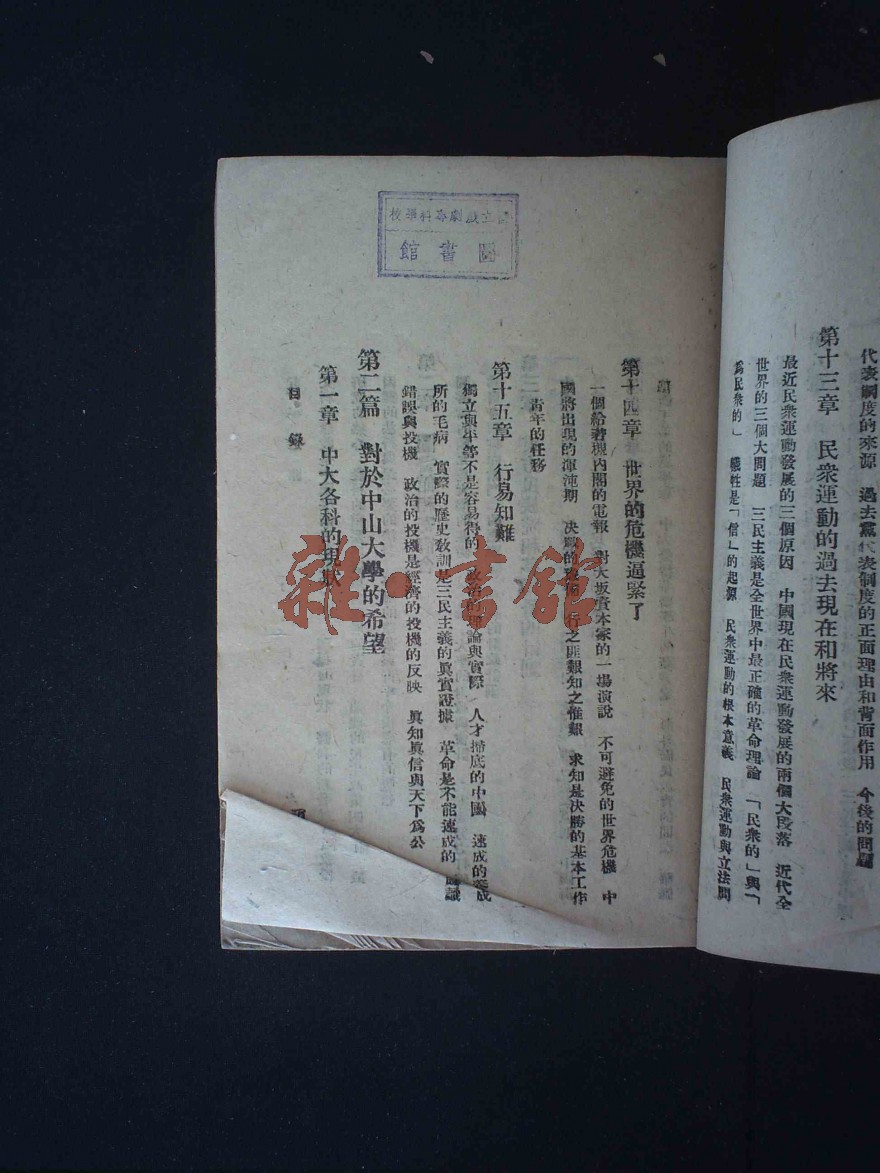 代表制度的來源　過去黨代表制度的正面理由和背面作用　今後的問題
第十三章　民衆運動的過去現在和將來
最近民衆運動發展的三個原因　中國現在民衆運動發展的兩個大段落　近代全
世界的三個大問題　三民主義是全世界中最正確的革命理論　「民衆的」與「
爲民衆的」　犧牲是「信」的起源　民衆運動的根本意義　民衆運動與立法問
國立戲劇專科學校
圖書館
第十四章　世界的危機逼緊了
一個給若槻內閣的電報　對大坂資本家的一場演說　不可避免的世界危機　中
國將出現的渾沌期　決勝的 行之匪艱知之惟艱　求知是決勝的基本工作
青年的任務
第十五章　行易知難
獨立與平等不是容易得的　政治的理論與實際　人才掃底的中國　速成的養成
所的毛病　實際的歷史敎訓是三民主義的眞實證據　革命是不能速成的　認識
錯誤與投機　政治的投機是經濟的投機的反映　眞知眞信與天下爲公
第二篇　對於中山大學的希望
第一章　中大各科的現狀
目錄
雜·書館